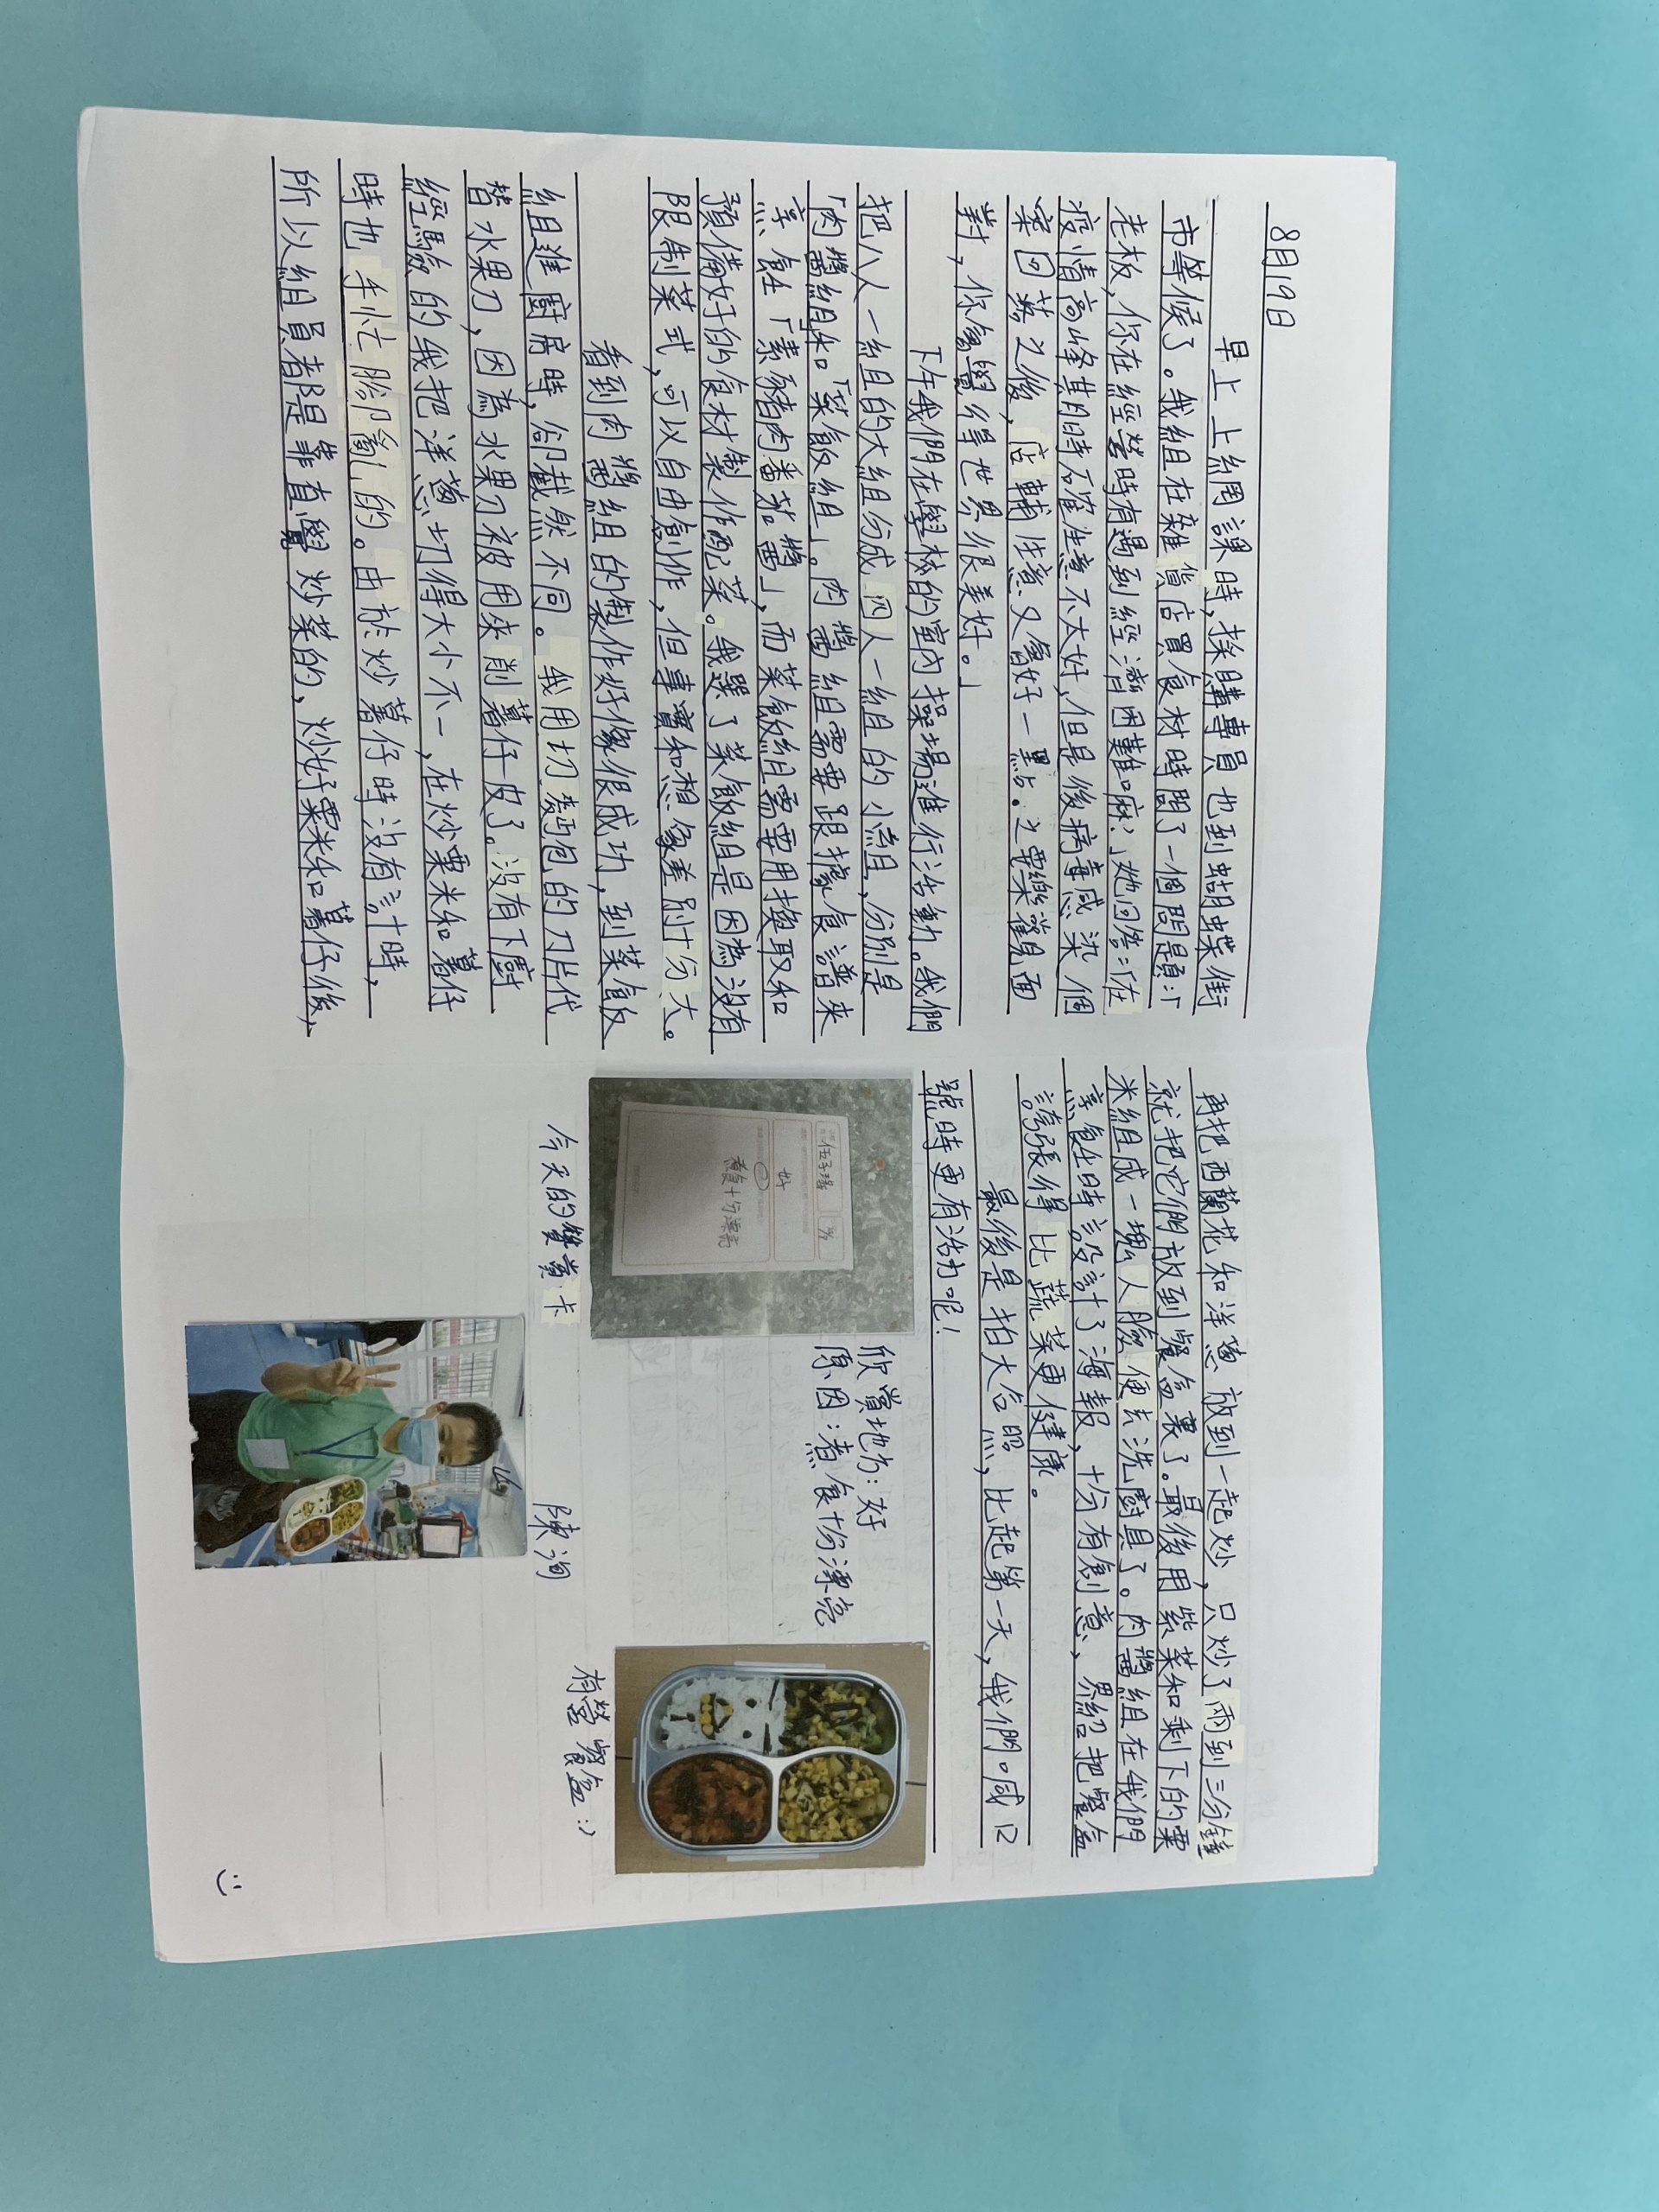 8月19日
早上上網課時,採購專員也到蝴蝶街
市等候了。我組在雜貨店買食材時問了一個問題:「
老板,你在經營時有遇到經濟困難嘛?」她回應:「在
疫情高峰其期時確生意不太好,但是後病毒感染個
案回落之後,店鋪生意又會好一點。之要樂觀面
對,你會覺得世界很美好。」
下午我們在學校的室內操場進行活動。我們
把八人一組的大組分成四人一組的小組,分別是
「肉醬組」和「菜飯組」。肉醬組需要跟據食譜來
烹飪「素豬肉番茄醬」,而菜飯組需要用換取和
預備好的食材製作配菜。我選了菜飯組是因為沒有
限制菜式,可以自由創作,但事實和想像差別十分大。
看到肉醬組的製作好像很成功,到菜飯
組進廚房時,卻截然不同。我用切麪包的刀片代
替水果刀,因為水果刀被用來削薯仔皮了。沒有下廚
經驗的我把洋蔥切得大小不一,在炒粟米和薯仔
時也手忙腳亂的。由於炒薯仔時沒有計時,
所以組員都是靠直覺炒菜的,炒好粟米和薯仔後,
再把西蘭花和洋蔥放到一起炒,只炒了兩到三分鐘
就把它們放到餐盒裏了。最後用紫菜和剩下的粟
米組成一塊人臉便去洗廚具了。肉醬組在我們
烹飪時設計了海報,十分有創意,界紹把餐盒
誇張得比蔬菜更健康。
最後是拍大合照,比起第一天,我們喊口
號時更有活力呢!
伍子瑤
好
煮食十分漂亮
今天的贊賞卡
欣賞地方:好
原因:煮食十分漂亮
陳洵
有營餐盒:)
:)